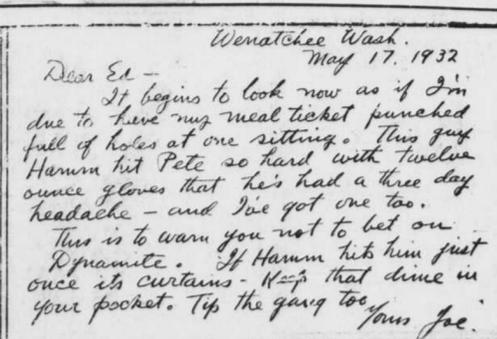 Wenatchee Wash.
May 17, 1932
Dear Ed —
It begins to look now as if I'm
due to have my meal ticket punched
full of holes at one sitting. This guy
Hamm hit Pete so hard with twelve
ounce gloves that he's had a three day
headache — and I've got one too.
This is to warn you not to bet on
Dynamite. If Hamm hits him just
once its curtains - Keep that dime in
your pocket. Tip the gang too
Yours Joe.